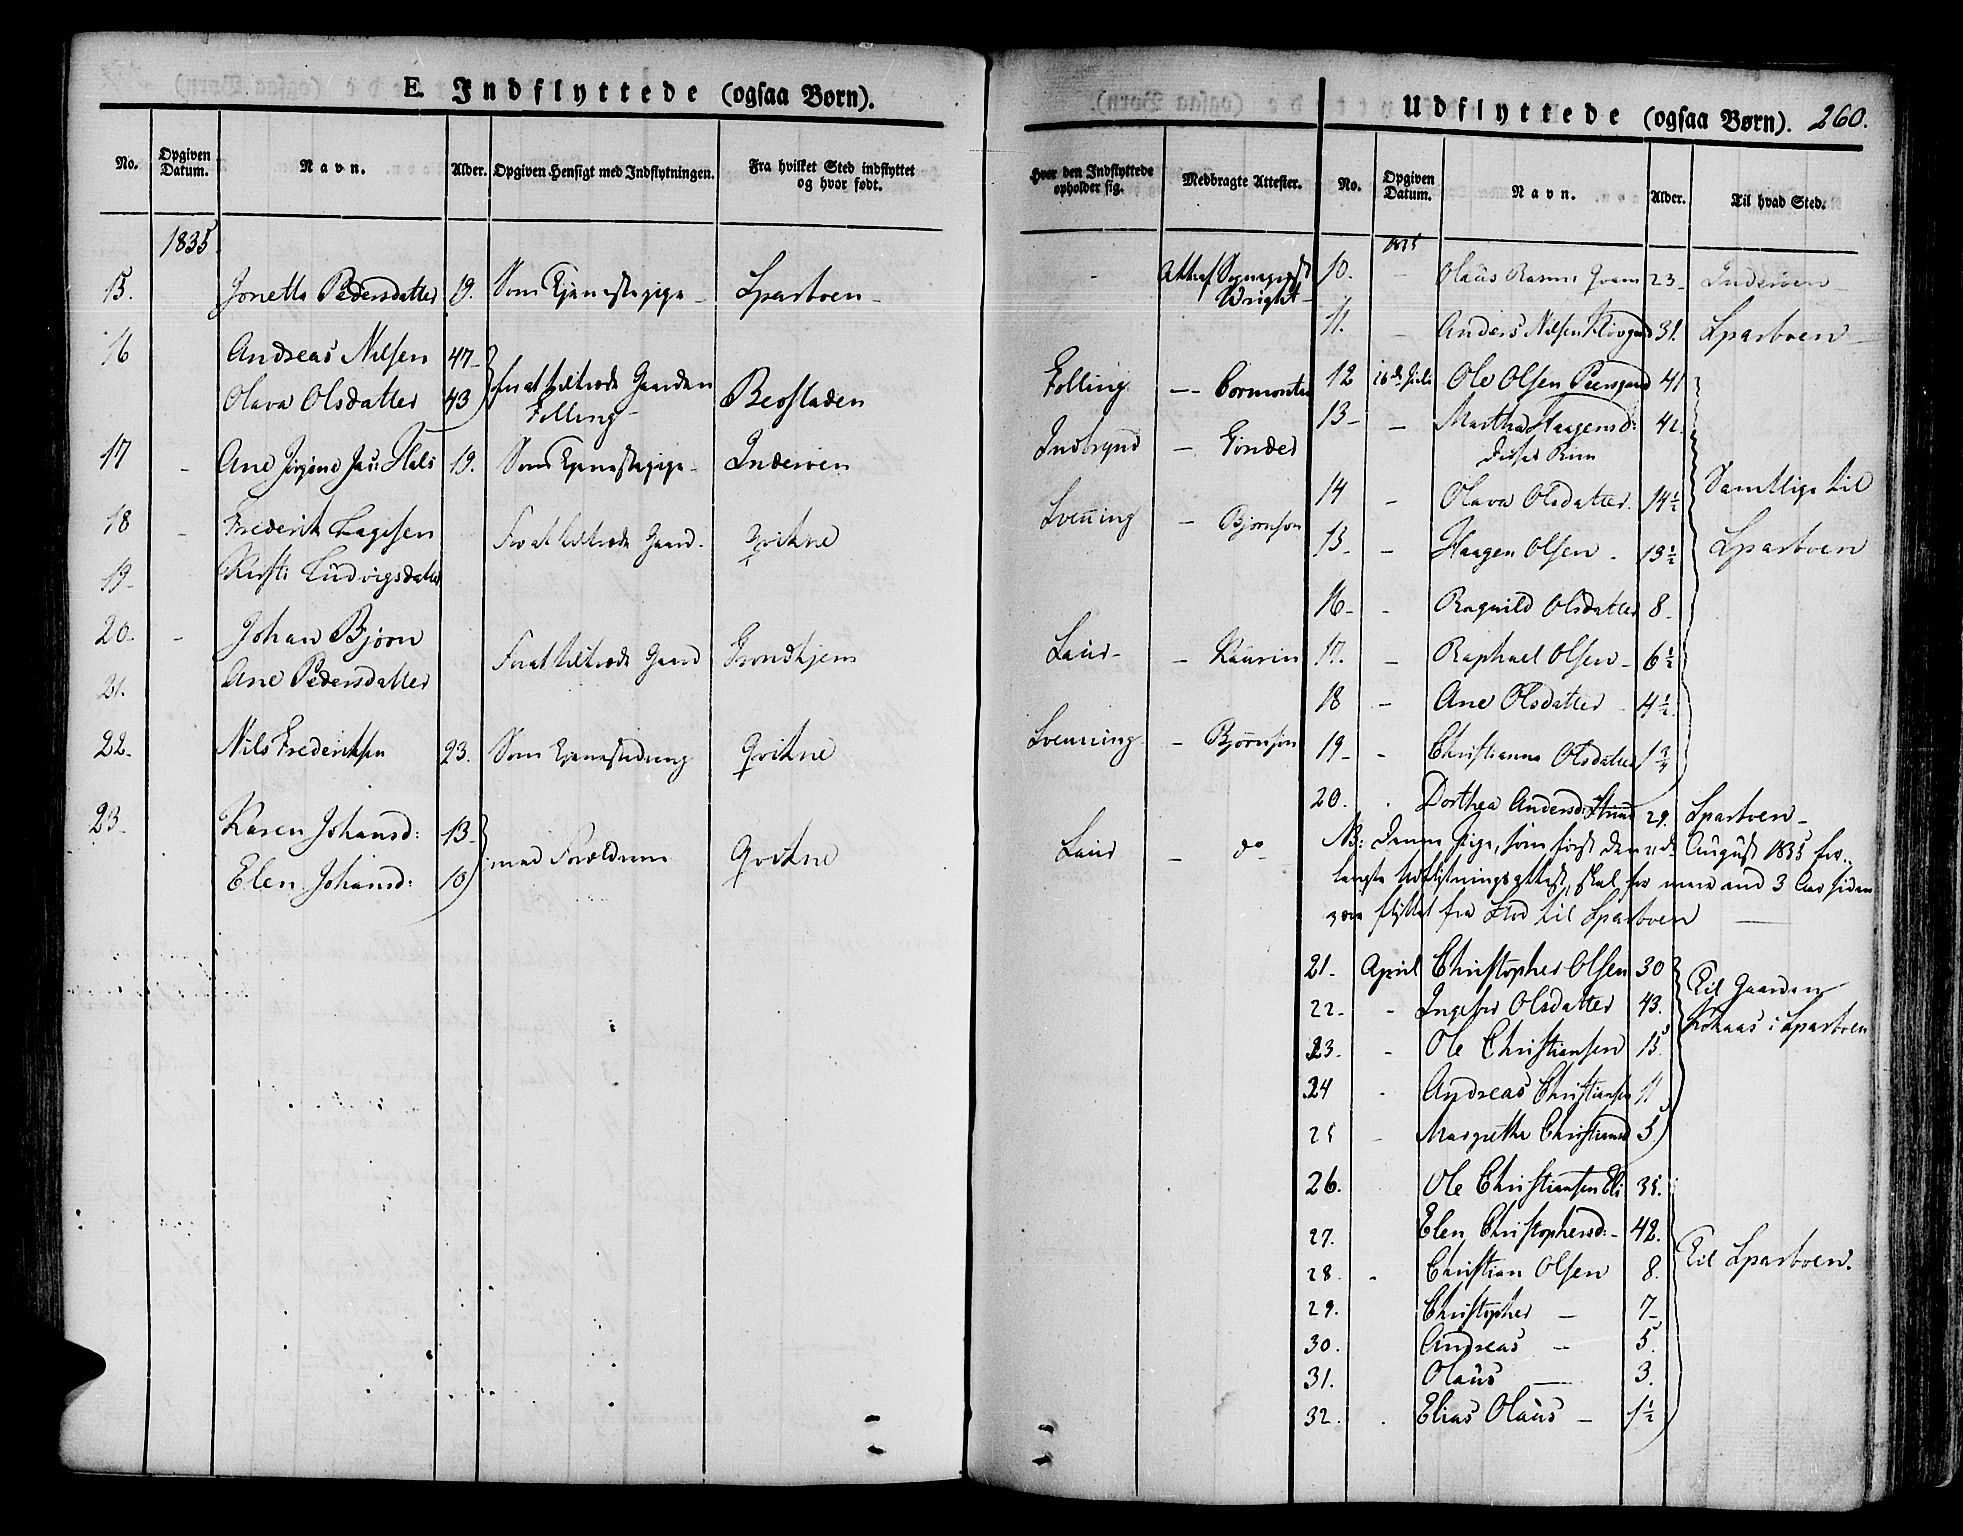 E. Indflyttede (ogsaa Børn).
No. Opgiven Datum. Navn. Alder. Opgiven Hensigt med Indflytningen. Fra hvilket Sted indflyttet og hvor født.
1835
15. Jonetta Pedersdatter 19. Som Tjenestepige - Sparboen -
16 Andreas Nilsen 47 -
Olava Olsdatter 43 for at tiltræde Gaarden Følling - Beostaden
17 - Ane Jørgine Jac: Hals 19. Som Tjenestepige - Inderøen
18 - Frederik Lagesen For at tiltræde Gaard - Qvikne
19 - Kirsti Ludvigsdatter
20. - Johan Bjørn For at tiltræde Gaard Trondhjem
21. Ane Pedersdatter
22. Nils Frederiksen 23. Som Tjenestedreng Qvikne
23. Karen Johansd: 13 -
Elen Johansd: 10 med Forældrene Qvikne
Udflyttede (ogsaa Børn). 260.
Hvor den Indflyttede opholder sig. Medbragte Attester. No. Opgiven Datum. Navn. Alder. Til hvad Sted.
1835
- Attest f. Sognepræst Wright - 10. - Olaus Rasmus Qvam 23 - Inderøen -
11. - Anders Nilsen 31. Sparboen -
Følling - Cormontan 12 16de Juli Ole Olsen 41
13 - - Martha Haagensd: 42.
Indbrynd - Gønder
deres Børn
14 - Olava Olsdatter. 14½ Samtlige til
Svenning - Bjørnson 15 - - Haagen Olsen - 13½ Sparboen
16 - - Ragnild Olsdatter 8 -
Laur - - Kaurin 17. - Raphael Olsen - 6½
18 - Ane Olsdatter - 4½
Svenning - Bjørnson 19 - - Christianna Olsdatter 1¾
20. . Dorthea Andersd: 29. Sparboen -
Laur - do NB: Denne Pige, som først den 11de August 1835 for-
langte Udflytningsattest, skal for mere end 3 Aar siden
være flyttet fra Stod til Sparboen -
21 - April Christopher Olsen 30 Til Gaarden
22 - - Ingeber Olsdatter 43. i Sparboen
23. - Ole Christiansen 15.
24 - Andreas Christiansen 11
25 - Margrethe Christiansd 5.
26. Ole Christiansen Eli 35.
27. Elen Christophersd: - 42. Til Sparboen.
28. - Christian Olsen 8.
29. Christopher - 7 -
30. Andreas - 5.
31. Olaus - 3.
32. . Elias Olaus - 1½